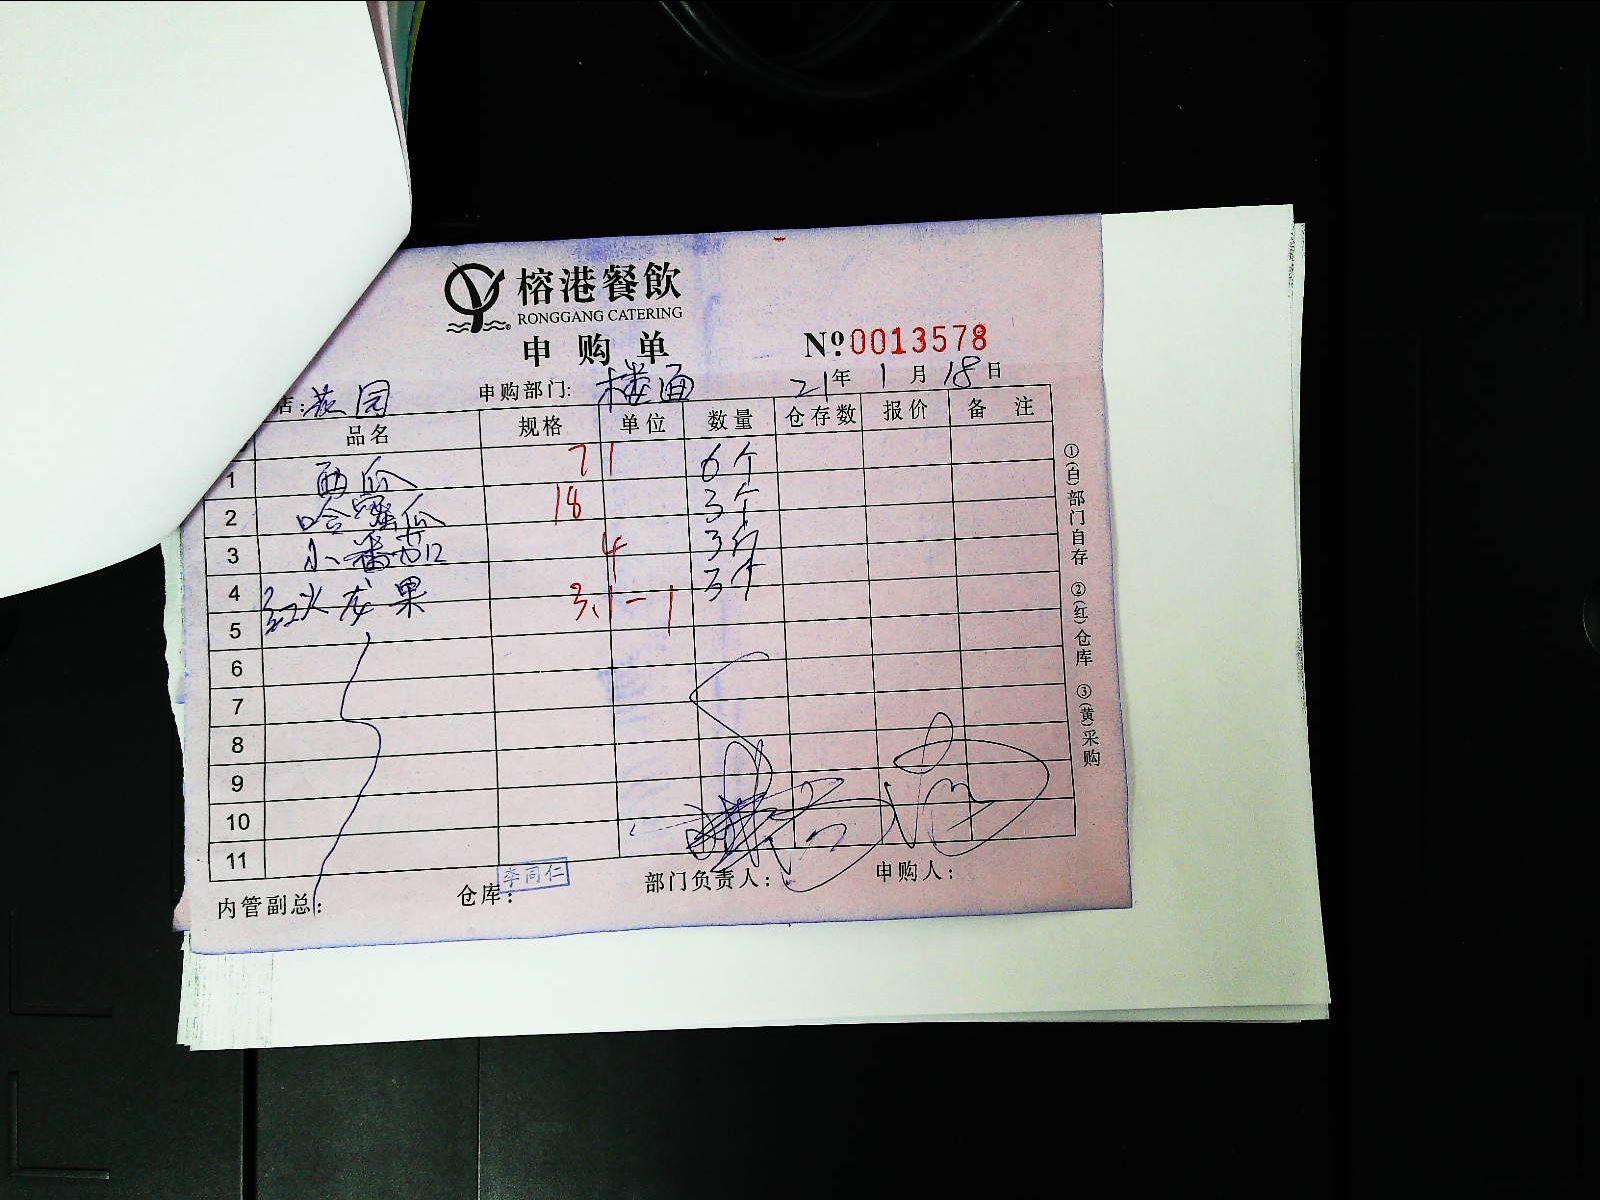 榕港餐飲
RONGGANG CATERING
申购单
№0013578
店: 花园 申购部门: 楼面 21年1月18日
品名 规格 单位 数量 仓存数 报价 备注
1 西瓜 71 6个
2 哈蜜瓜 18 3个
3 小番茄 4 3斤
4 红火龙果 3.1-1 3个
5
6
7
8
9
10
11
内管副总: 仓库: 李同仁 部门负责人: 申购人:
①(自)部门自存 ②(红)仓库 ③(黄)采购